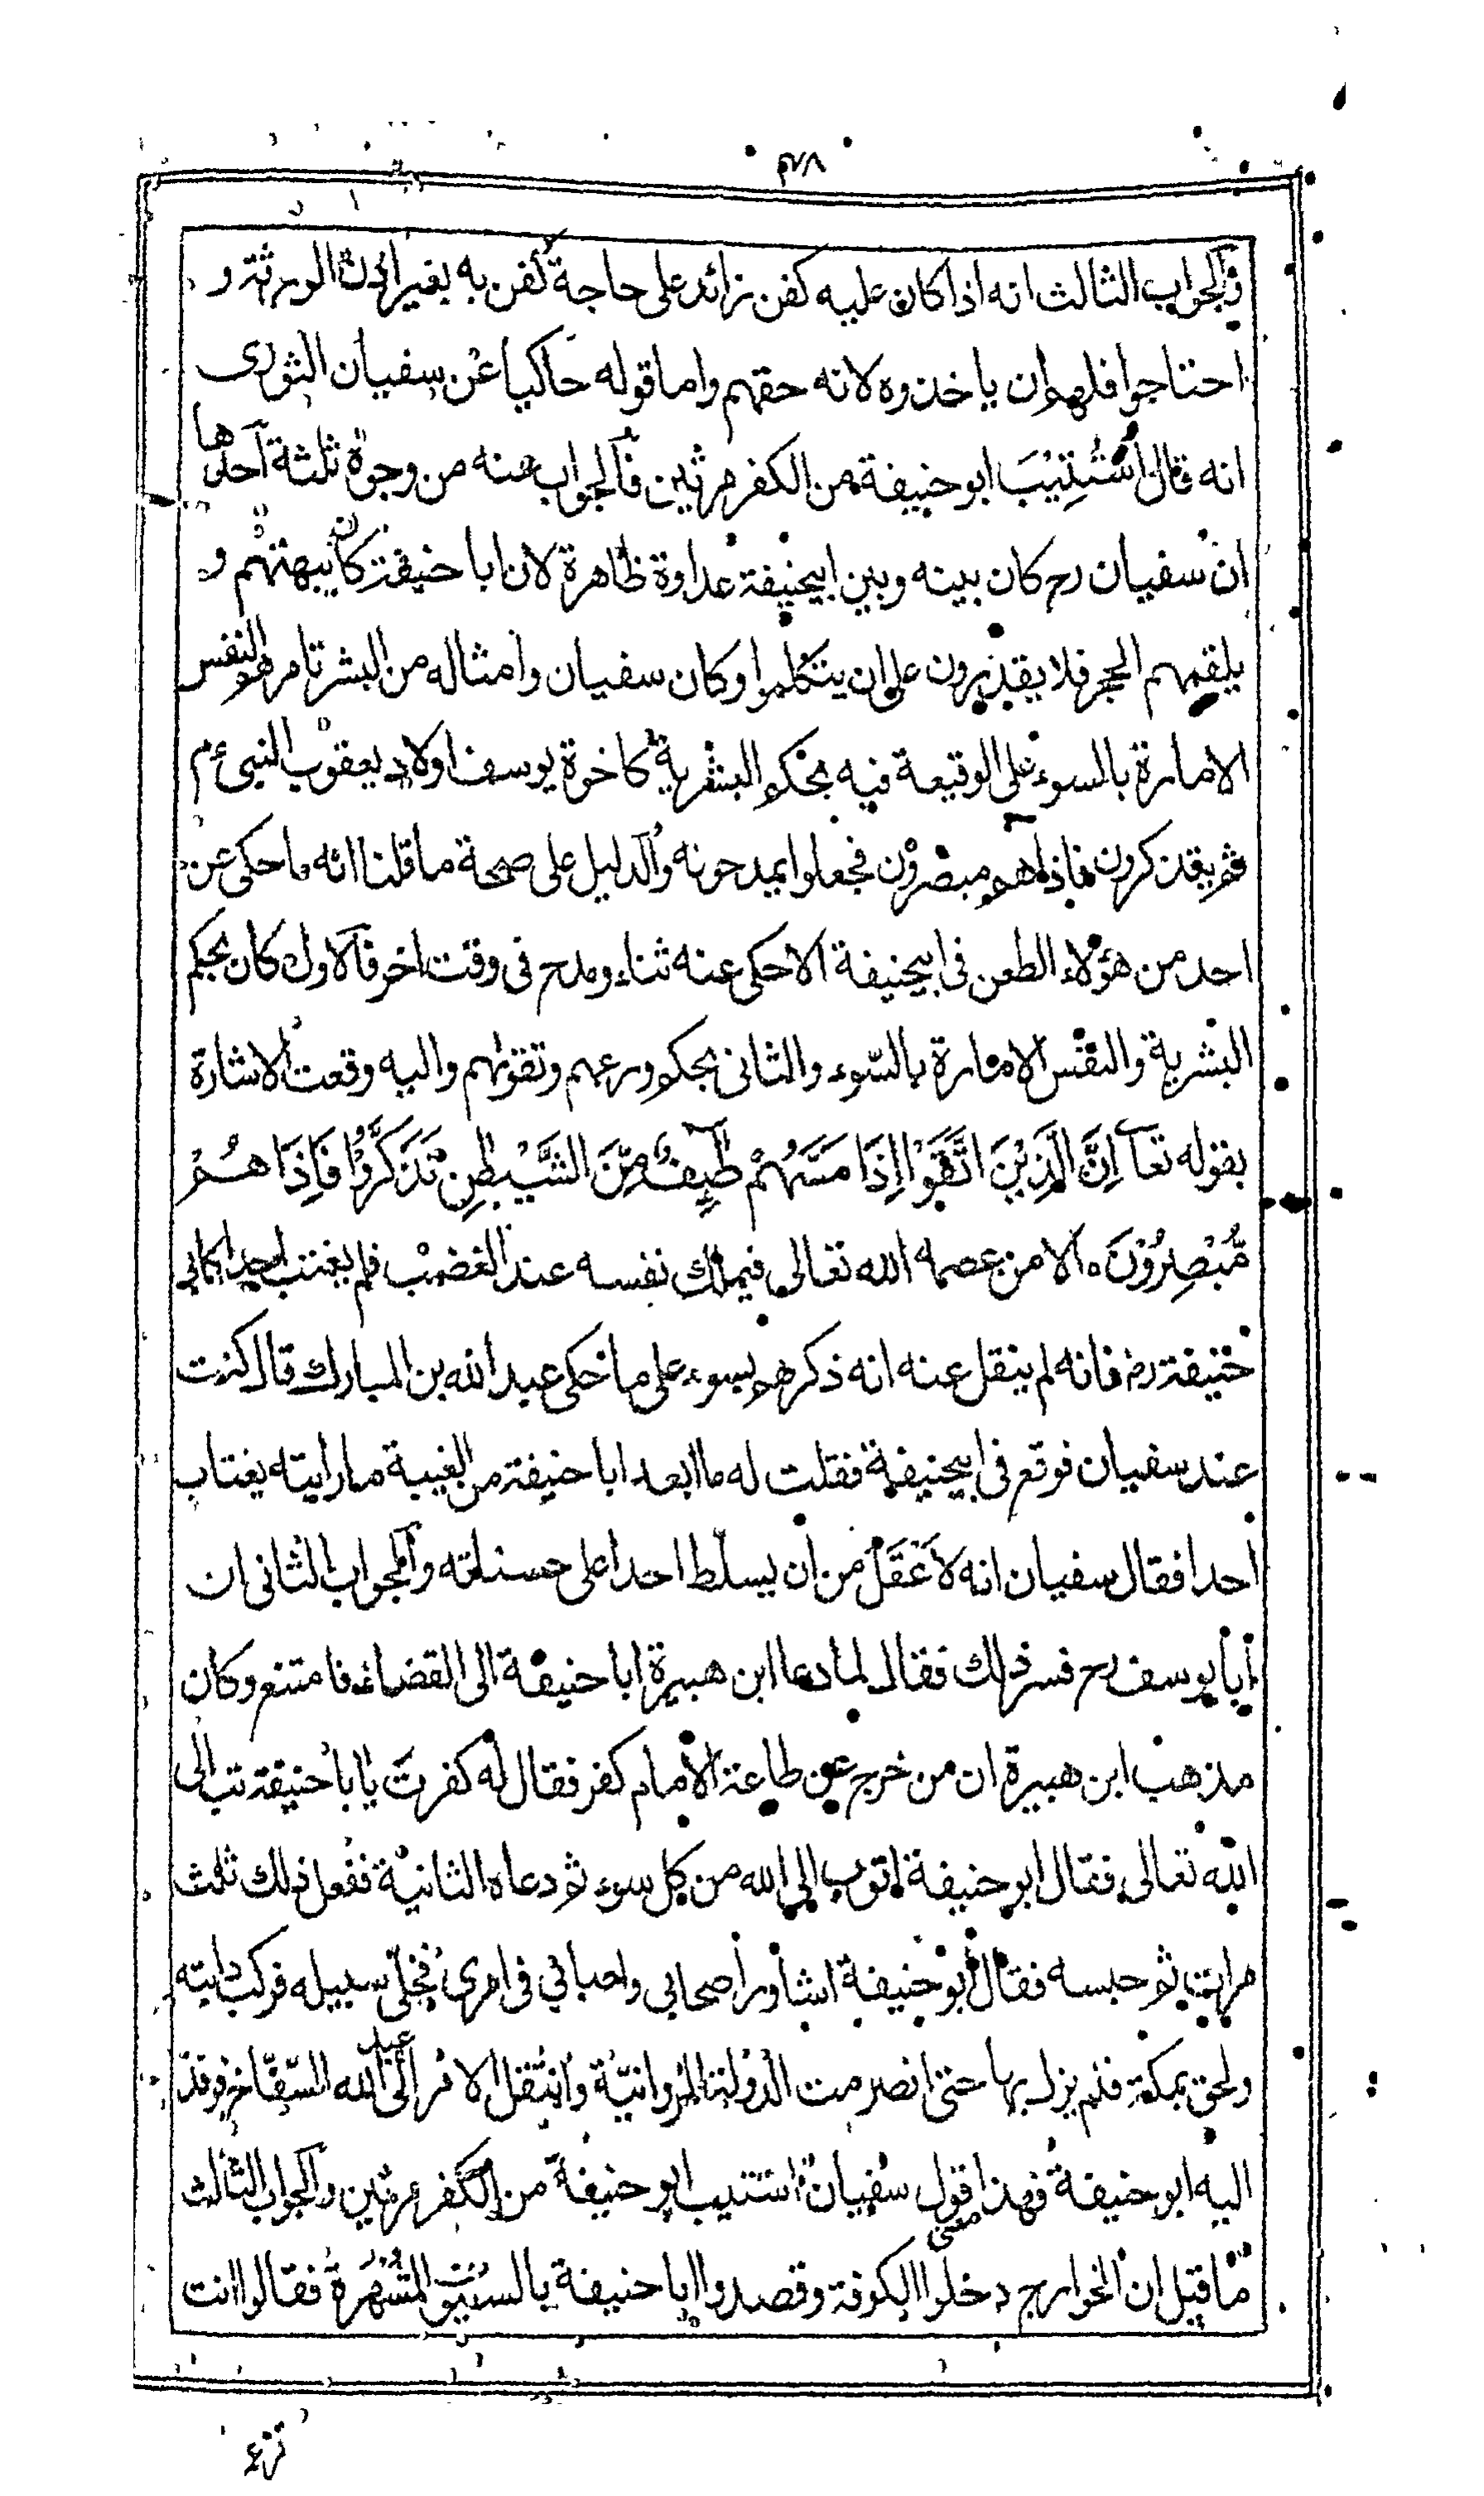 ٤٢٨
والجواب الثالث انه اذا كان عليه كفن زائد على حاجة كفن به بغير اذن الورثة و
احتاجوا فلهم ان ياخذوه لانه حقهم واما قوله حاكيا عن سفيان الثورى
انه قال اسْتُتِيْبَ ابو حنيفة من الكفر مرتين فالجواب عنه من وجوه ثلثة احدها
ان سفيان رح كان بينه وبين ابيحنيفة عداوة ظاهرة لان ابا حنيفة كان يبهتهم و
يلقمهم الحجر فلا يقدرون على ان يتكلموا وكان سفيان وامثاله من البشر تامرهم النفس
الامارة بالسوء على الوقيعة فيه بحكم البشرية كاخوة يوسف اولاد يعقوب النبى ءم
ثم يتذكرون فاذا هم مبصرون فجعلوا يمدحونه والدليل على صحة ما قلنا انه ما حكى عن
احد من هؤلاء الطعن فى ابيحنيفة الا حكى عنه ثناء ومدح فى وقت اخر فالاول كان بحكم
البشرية والنفس الامارة بالسّوء والثانى بحكم ورعهم وتقوىهم واليه وقعت الاشارة
بقوله تعا اِنَّ الَّذِيْنَ اتَّقَوْا اِذَا مَسَّهُمْ طٰٓئِفٌ مِّنَ الشَّيْطٰنِ تَذَكَّرُوْا فَاِذَا هُمْ
مُّبْصِرُوْنَ ه الا من عصمه الله تعالى فيملك نفسه عند الغضب فلم يغتب احدا كابى
حنيفة رض فانه لم ينقل عنه انه ذكرهم بسوء على ما حكى عبد الله بن المبارك قال كنت
عند سفيان فوقع فى ابيحنيفة فقلت له ما ابعد ابا حنيفة من الغيبة ما رايته يغتاب
احدا فقال سفيان انه لَاَعْقَلُ من ان يسلط احدا على حسناته والجواب الثانى ان
ابا يوسف رح فسر ذلك فقال لما دعا ابن هبيرة ابا حنيفة الى القضاء فامتنع وكان
مذهب ابن هبيرة ان من خرج عن طاعة الامام كفر فقال له كفرت يا با حنيفة تب الى
الله تعالى فقال ابو حنيفة اتوب الى الله من كل سوء ثم دعاه الثانية ففعل ذلك ثلث
مرات ثم حبسه فقال ابو حنيفة اشاور اصحابى واحبابى فى امرى فخلّى سبيله فركب دابته
ولحق بمكة فلم يزل بها حتى انصرمت الدولة المروانيّة وانتقل الامر الى عبد الله السّفّاح فوفد
اليه ابو حنيفة فهذا معنى قول سفيان استتيب ابو حنيفة من الكفر مرتين والجواب الثالث
ما قيل ان الخوارج دخلوا الكوفة وقصدوا ابا حنيفة بالسيوف المشهرة فقالوا انت
تزعم